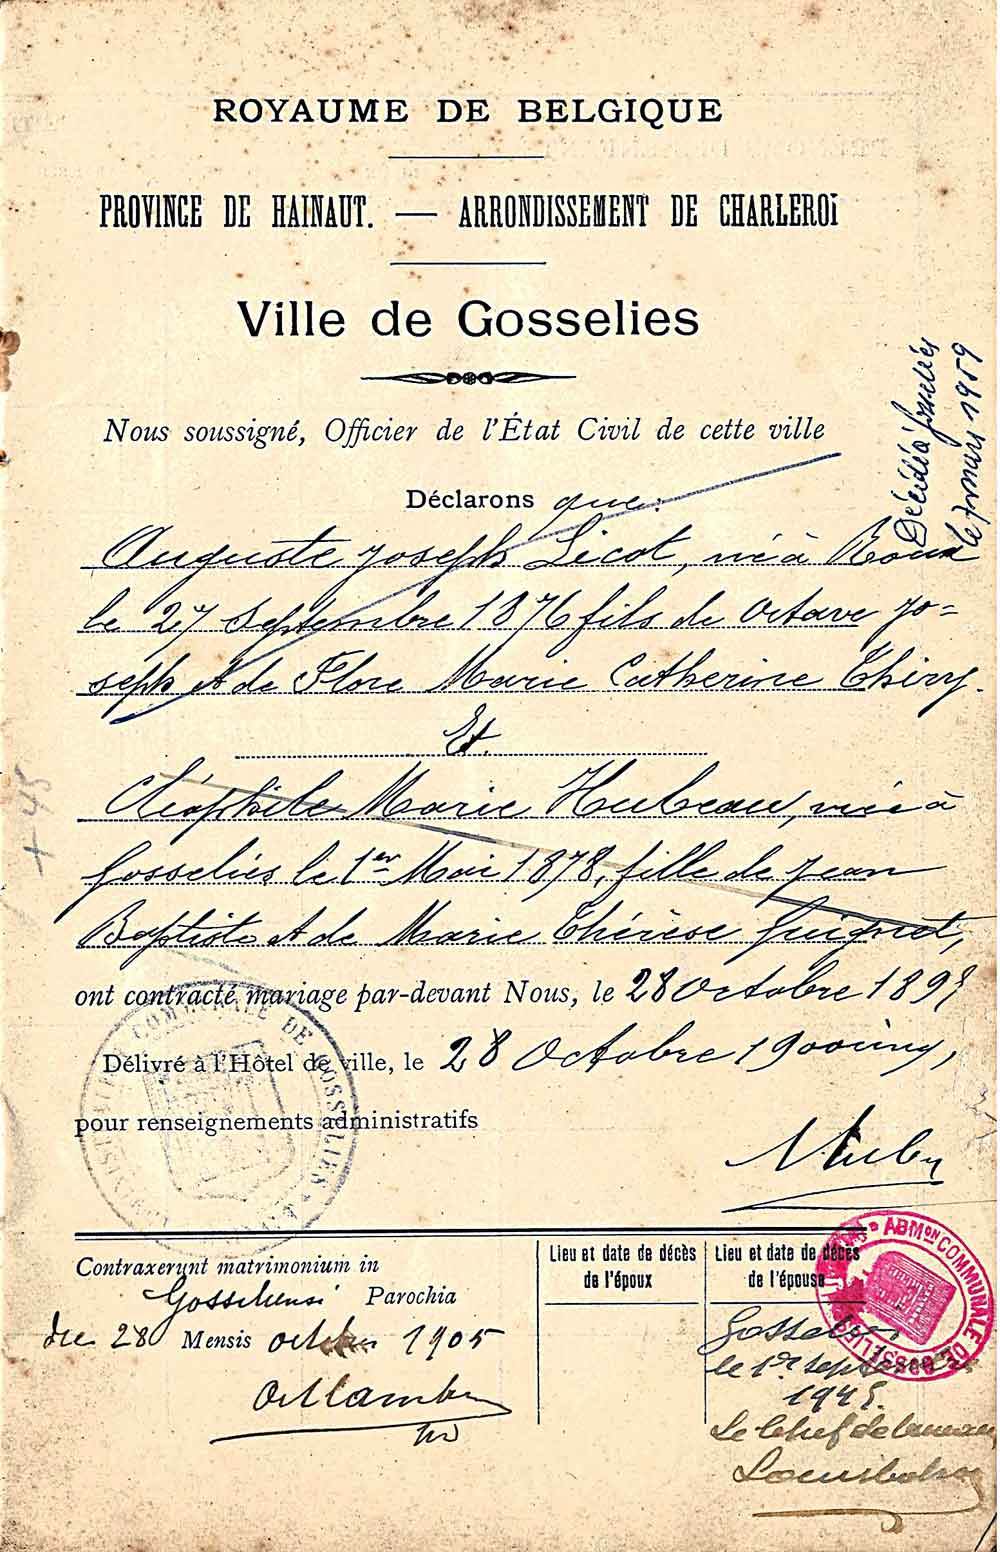 ROYAUME DE BELGIQUE
PROVINCE DE HAINAUT. — ARRONDISSEMENT DE CHARLEROI
Ville de Gosselies
Décédé à Jumet
le 7 mars 1959
Nous soussigné, Officier de l'État Civil de cette ville
Déclarons que:
Auguste Joseph Licot, né à Roux
le 27 Septembre 1876 fils de Octave Jo=
seph et de Flore Marie Catherine Thiry.
Et.
Cléophile Marie Hubeau, née à
Gosselies le 1er Mai 1878, fille de Jean
Baptiste et de Marie Thérèse Guignet,
+ 45
ont contracté mariage par-devant Nous, le 28 Octobre 189
Délivré à l'Hôtel de ville, le 28 Octobre 19
pour renseignements administratifs
COMMUNALE DE GOSSELIES
Contraxerunt matrimonium in
Parochia
die 28 Mensis 1905
Lieu et date de décès
de l'époux
Lieu et date de décès
de l'épouse
ADMon COMMUNALE DE GOSSELIES
Gosselies
le 1er septembre
1945.
Le Chef de bureau